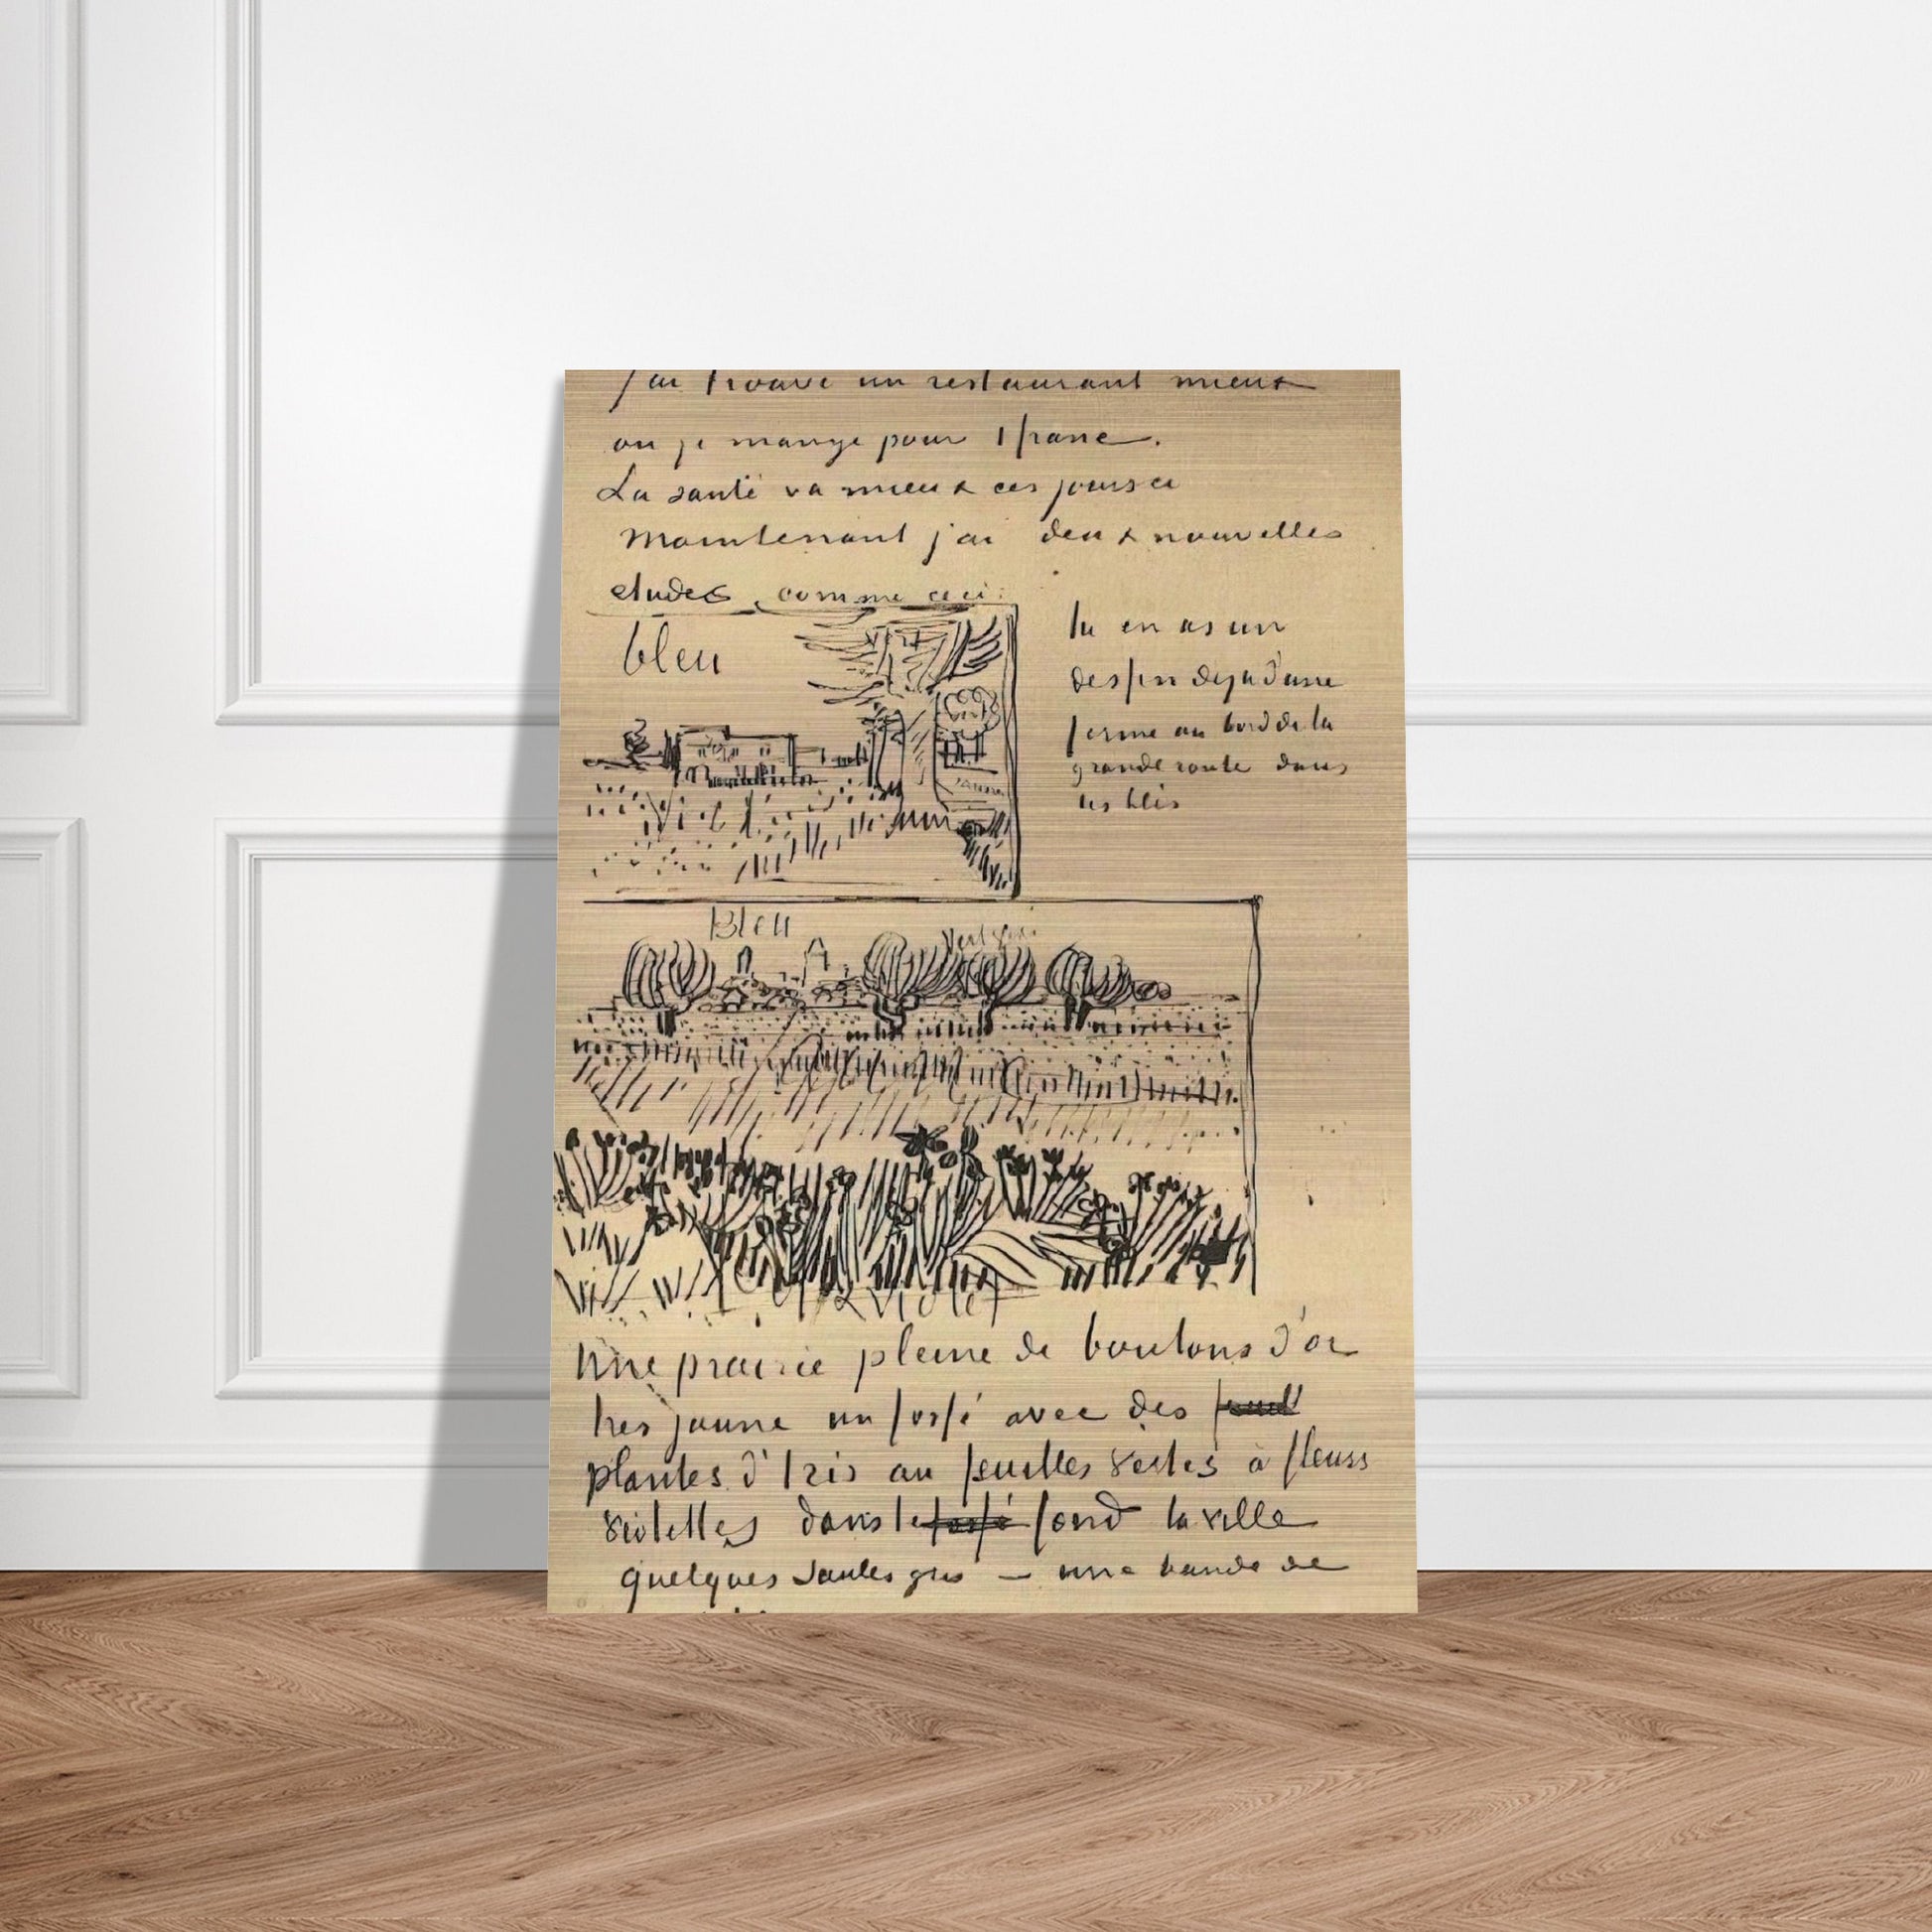 j'ai trouvé un restaurant mieux
ou je mange pour 1 franc.
La santé va mieux ces jours ci
Maintenant j'ai deux nouvelles
etudes comme ceci:
bleu
vert
jaune
tu en as un
dessin deja d'une
ferme au bord de la
grande route dans
les blés
Bleu
Vert gris
violet
Une prairie pleine de boutons d'or
tres jaune un fossé avec des
plantes d'Iris au feuilles vertes à fleurs
violettes dans le fossé fond la ville
quelques saules gris – une bande de